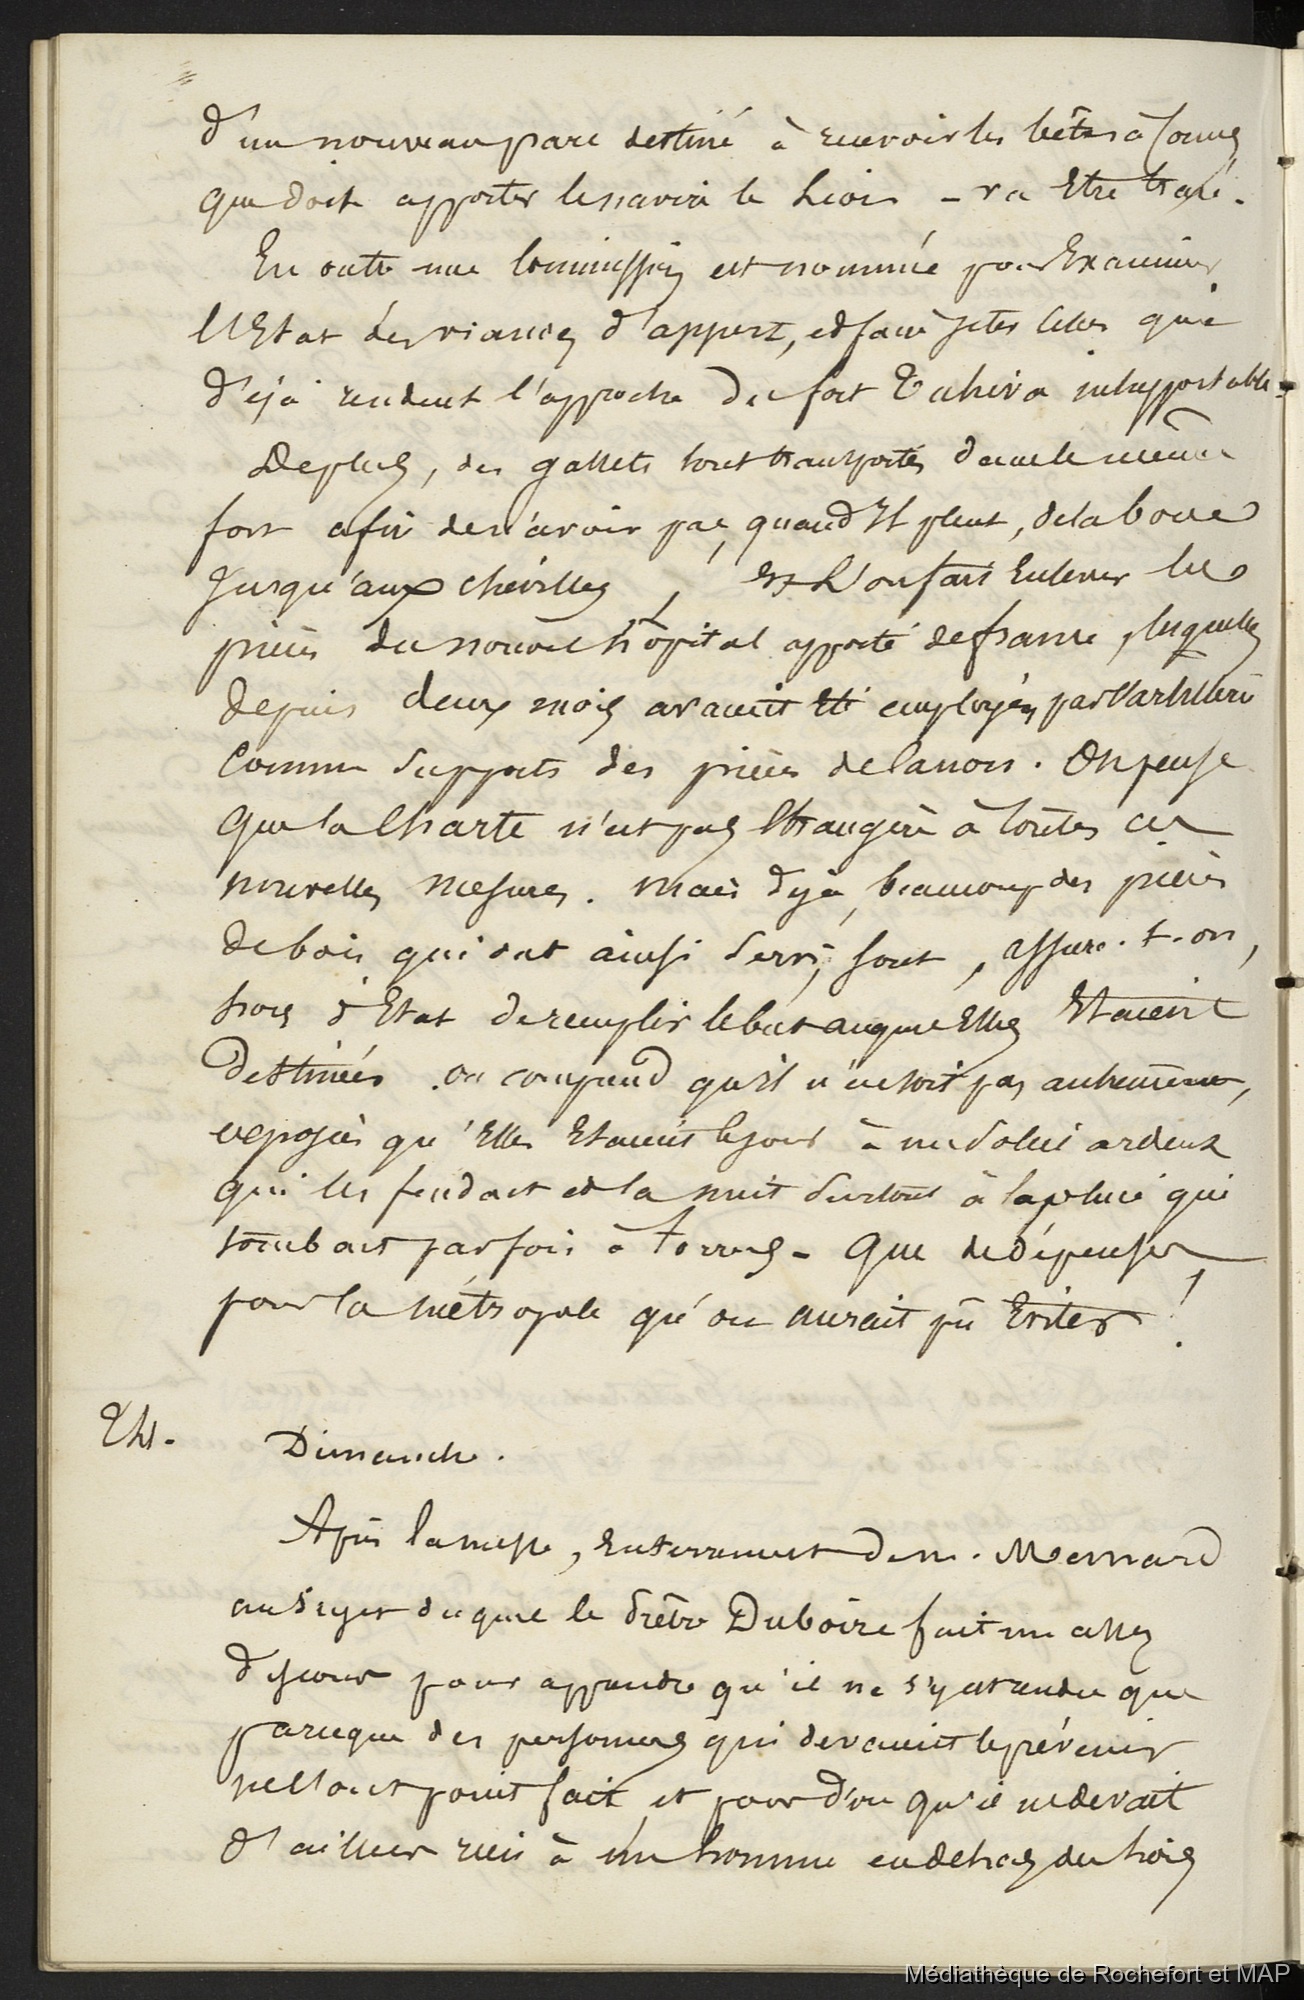 d'un nouveau parc destiné à recevoir les bêtes à cornes
que doit apporter le navire le - va Etre tracé.
En outre une commission est nommée pour Examiner
l'Etat des viandes d'appert, et faire jeter celles qui
d'éjà rendent l'approche du fort Tuhiva insupportable.
De plus, des gallets sont transportés dans le même
fort afin de n'avoir pas, quand Il pleut, de la boue
Jusqu'aux chévilles, Et L'on fait Enlever les
pièces du nouvel hôpital apporté de france, lesquelles
depuis deux mois avaient Eté employées par l'artillerie
Comme supports des pièces de canon. On pense
que la Charte n'est pas Etrangère à toutes ces
nouvelles mesures. mais déjà, beaucoup des pièces
de bois qui ont ainsi servi, sont, assure-t-on,
hors d'Etat de remplir le but auquel Elles Etaient
Destinées. on comprend qu'il n'en soit pas autrement,
exposées qu'Elles Etaient le jour à un soleil ardent
qui les fendait et la nuit surtout à la pluie qui
tombait parfois à torrens - que de dépenses
pour la métropole qu'on aurait pû Eviter !
Dimanche.
Après la messe, Enterrement de m.
au sujet duquel le prêtre fait un assez
discours pour apprendre qu'il ne s'y est rendu que
parceque des personnes qui devaient le prévenir
ne l'ont point fait et pour d'on qu'il ne devait
d'ailleur rien à un homme en dehors du
Médiathèque de Rochefort et MAP